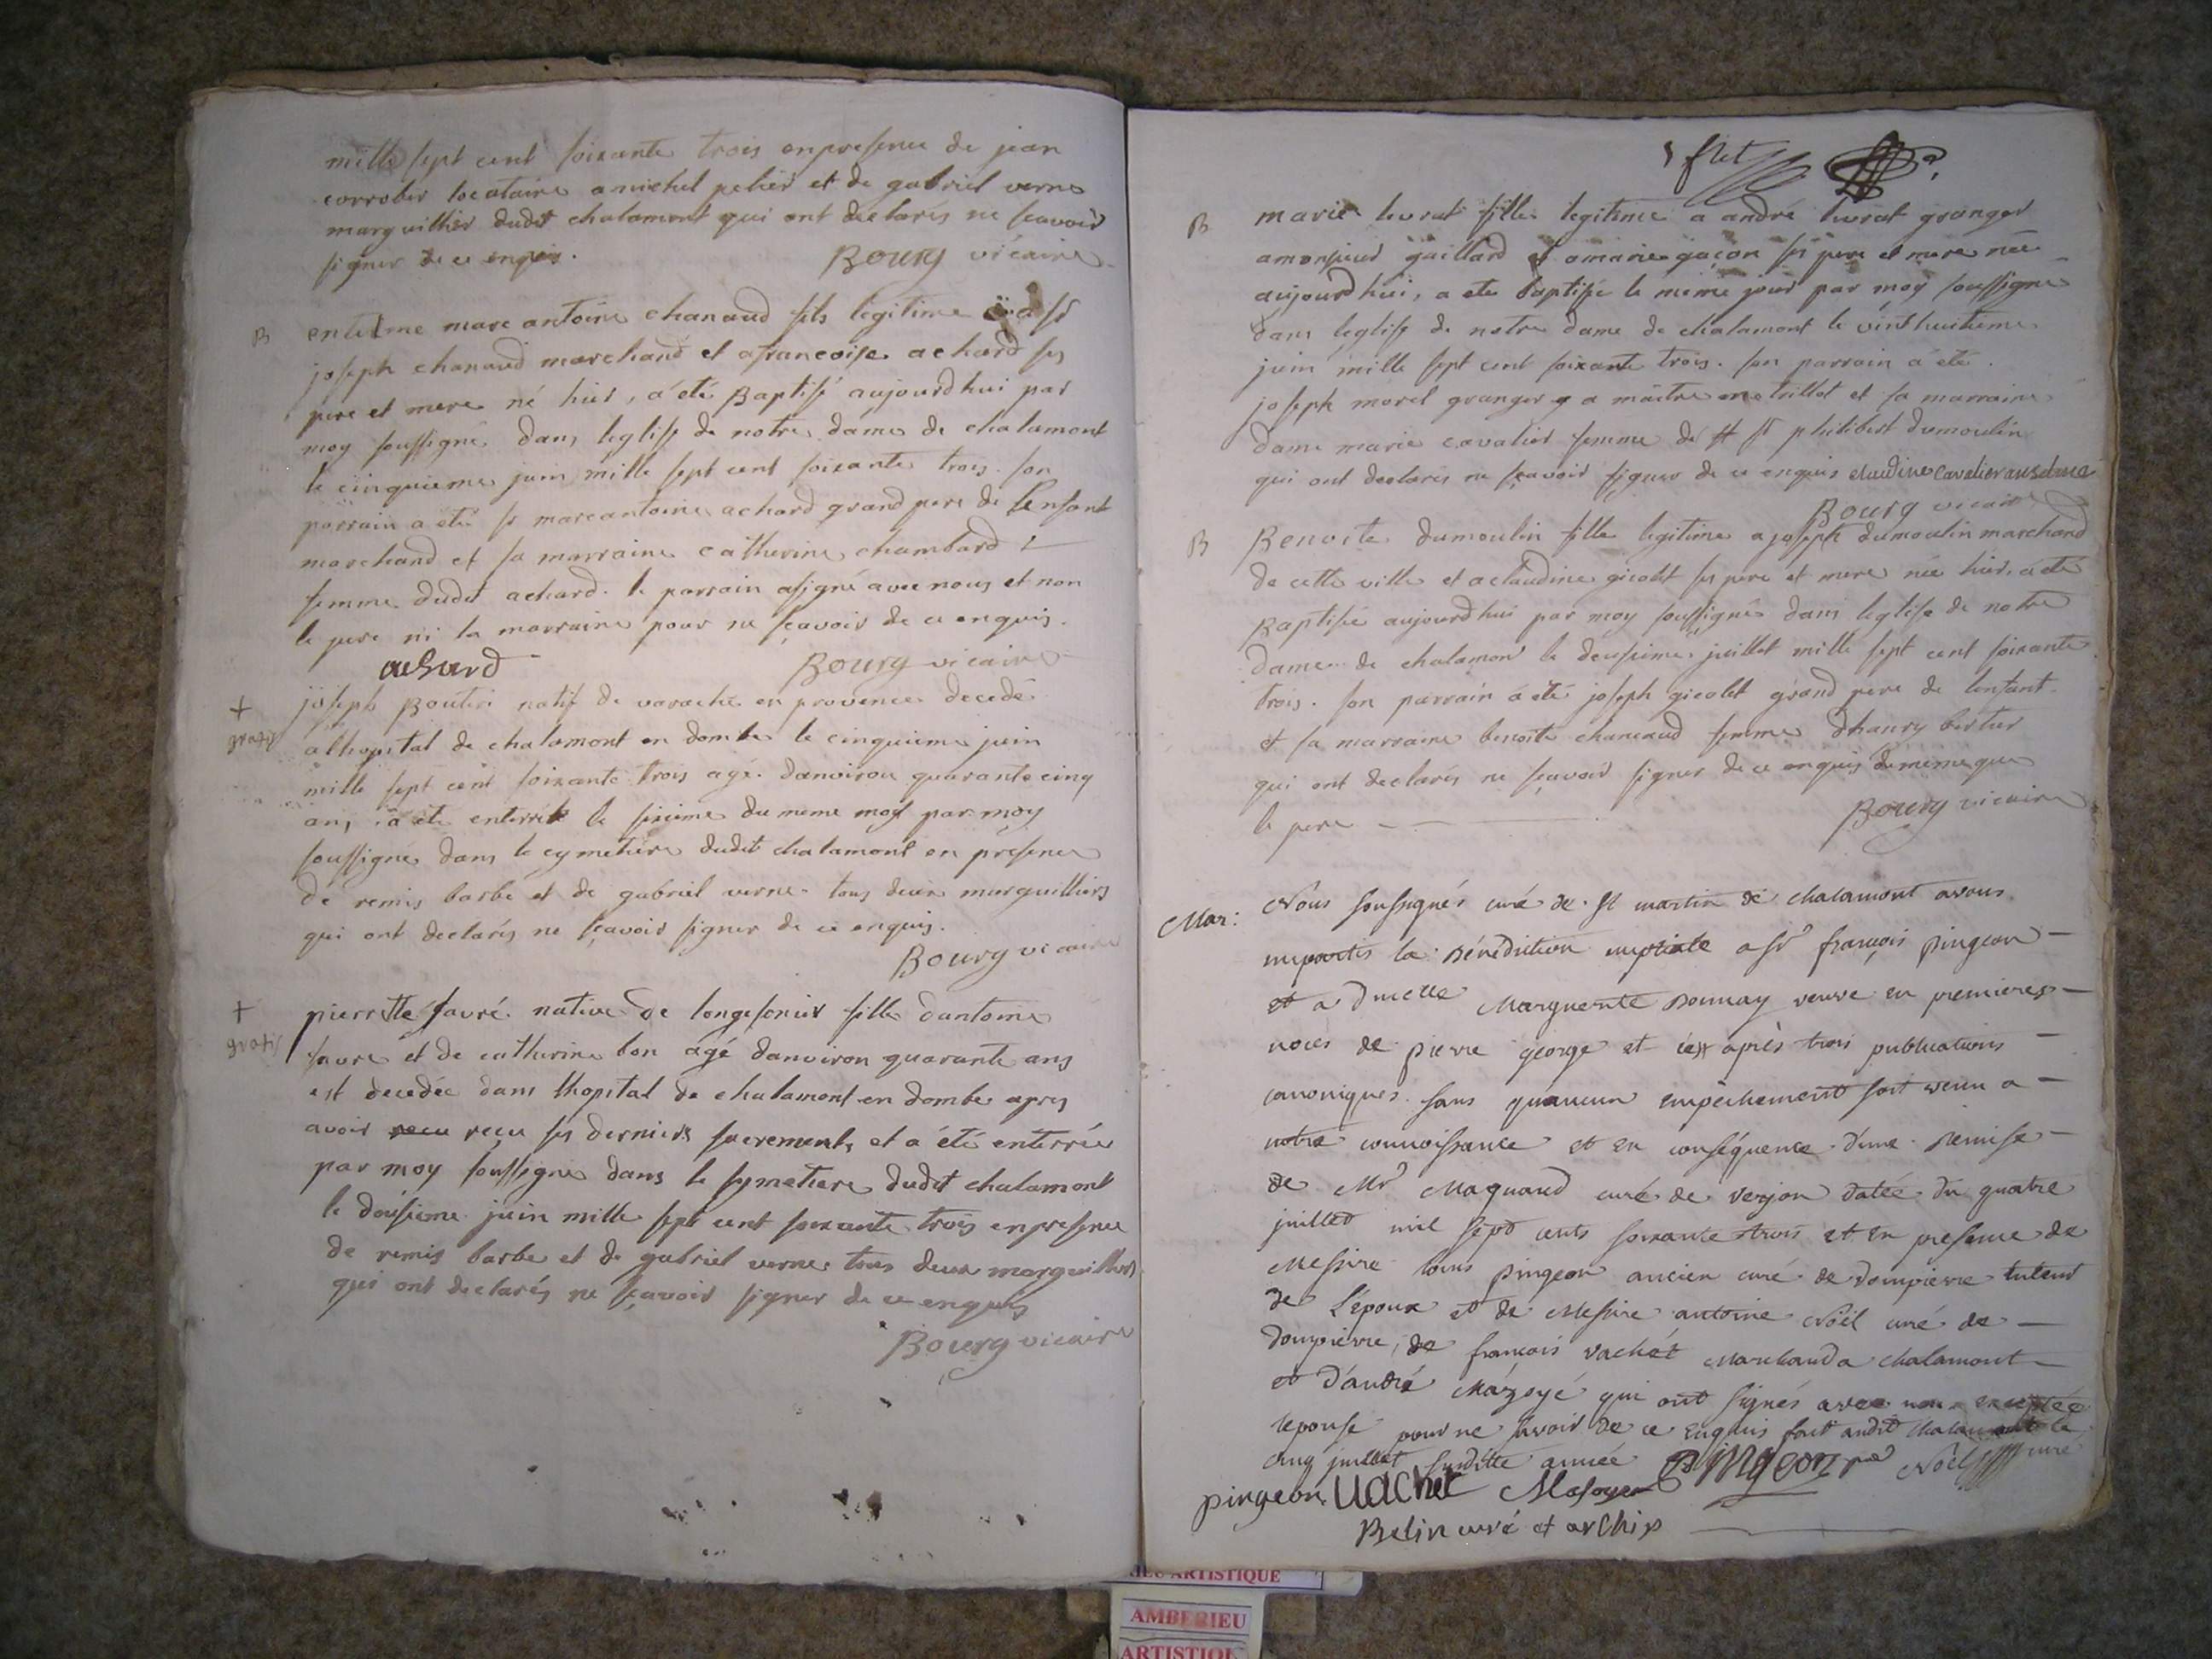 mille sept cent soixante trois en presence de jean
corrobir locataire a michel pelier et de gabriel verne
marguillier dudit chalamont qui ont declarés ne sçavoir
signer de ce enquis.
Bourg vicaire
B
entelme marc antoine chanaud fils legitime a sr
joseph chanaud marchand et a francoise achard ses
pere et mere né hier, a été Baptisé aujourdhui par
moy soussigné dans leglise de notre dame de chalamont
le cinquieme juin mille sept cent soixante trois. son
parrain a été sr marc antoine achard grand pere de Lenfant
marchand et sa marraine catherine chambard
femme dudit achard. le parrain a signé avec nous et non
le pere ni la marraine pour ne sçavoir de ce enquis.
achard
Bourg vicaire
+
gratis
joseph Bouteri natif de varache en provence decedé
a lhopital de chalamont en dombe le cinquieme juin
mille sept cent soixante trois agé danviron quarante cinq
ans, a été enterré le sixieme du meme mois par moy
soussigné dans le cymetiere dudit chalamont en presence
de remis barbe et de gabriel verne tous deux marguilliers
qui ont declarés ne sçavoir signer de ce enquis.
Bourg vicaire
+
gratis
pierrette favré native de longesonier fille dantoine
favre et de catherine bon agé danviron quarante ans
est decedée dans lhopital de chalamont en dombe apres
avoir recu reçu ses derniers sacrements et a été enterrée
par moy soussigné dans le symetiere dudit chalamont
le dousieme juin mille sept cent soixante trois en presence
de remis barbe et de gabriel verne tous deux marguilliers
qui ont declarés ne sçavoir signer de ce enquis
Bourg vicaire
B
marie levrat fille legitime a andré levrat granger
a monsieur gaillard et a marie gaçon ses pere et mere née
aujourdhui, a été baptisée le même jour par moy soussigné
dans leglise de notre dame de chalamont le vint huitieme
juin mille sept cent soixante trois. son parrain a été
joseph morel granger a maitre metrillot et sa marraine
dame marie cavalier femme de sr philibert dumoulin
qui ont declarés ne sçavoir signer de ce enquis claudine cavalier
Bourg vicaire
B
Benoite dumoulin fille legitime a joseph dumoulin marchand
de cette ville et a claudine gicolet ses pere et mere née hier, a été
Baptisée aujourdhui par moy soussigné dans leglise de notre
dame de chalamon le deusieme juillet mille sept cent soixante
trois. son parrain a été joseph gicolet grand pere de lenfant
et sa marraine benoite chanaud femme dhanry bertur
qui ont declarés ne sçavoir signer de ce enquis de même que
le pere
Bourg vicaire
Mar:
Nous soussignés curé de St martin de chalamont avons
impartis la Bénédiction nuptiale a Sr françois pingeon
et a Dmelle Marguerite Bonnay veuve en premieres
noces de pierre george et ce après trois publications
canoniques sans qu'aucun empêchement soit venu a
notre connoissance et en conséquence d'une remise
de Mr Maquaud curé de verjon datée du quatre
juillet mil sept cents soixante trois et en presence de
Messire louis pingeon ancien curé de dompierre tuteur
de L'époux et de Messire antoine Noël curé de
dompierre, de françois vachet Marchand a chalamont
et d'andré Mazoyé qui ont signés avec nous exceptée
lepouse pour ne savoir de ce enquis fait audit chalamont le
cinq juillet susditte année
Pingeon
Noël curé
pingeon vachet Masoyer
Belin curé et archip
ARTISTIQUE
AMBERIEU